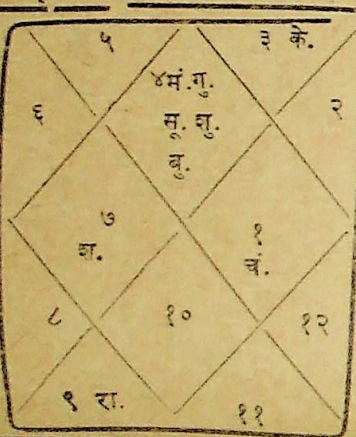 ५
३ के.
४मं.गु.
सू. शु.
बु.
६
२
७
श.
१
चं.
८
१०
१२
९ रा.
११